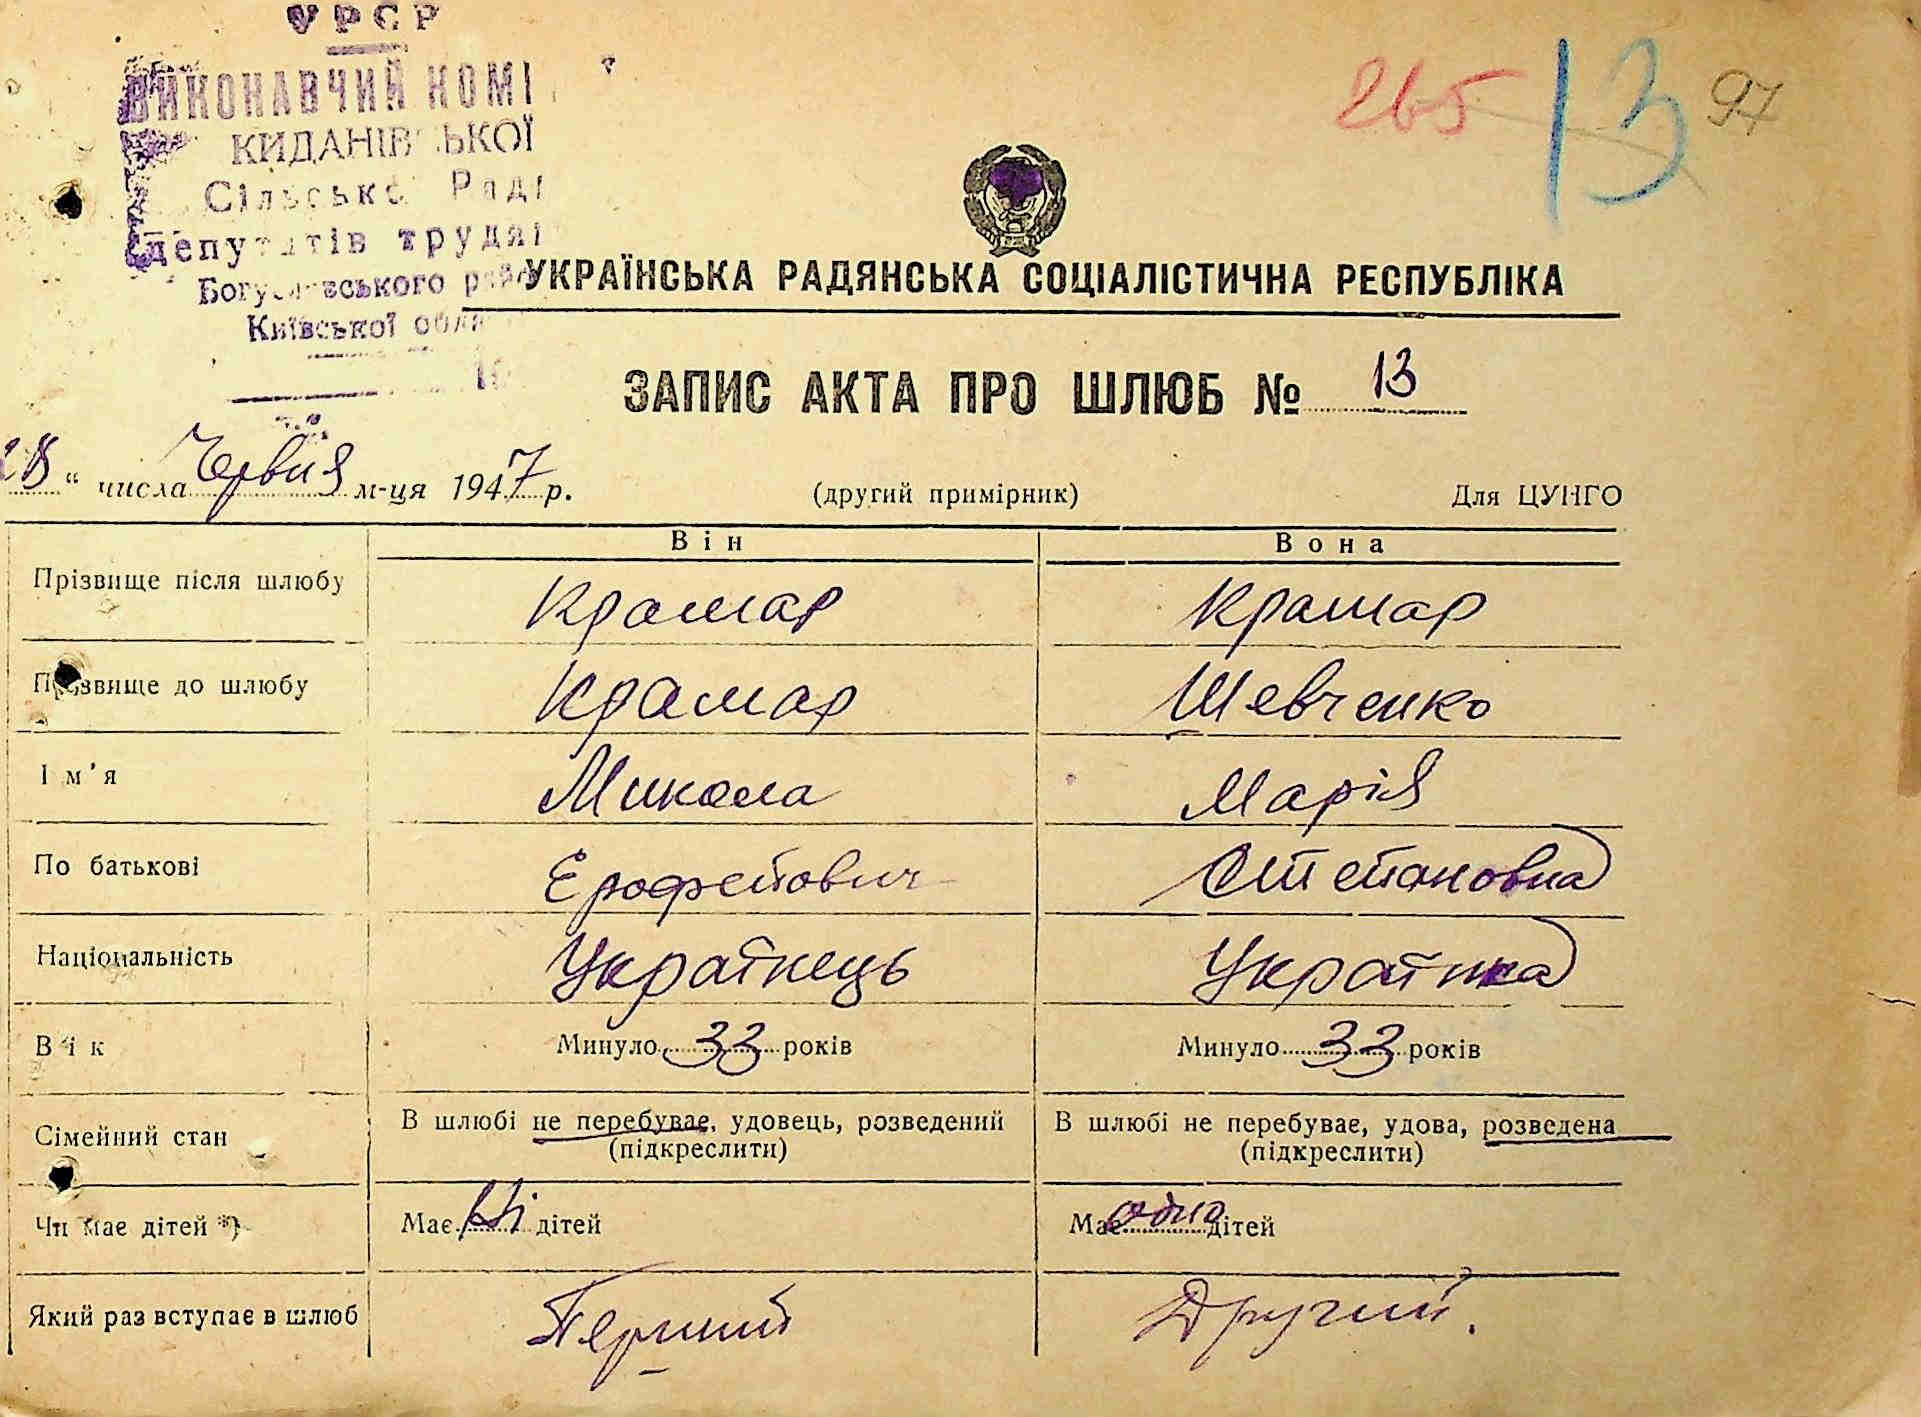 УРСР
ВИКОНАВЧИЙ КОМІ
КИДАНІВСЬКОЇ
Сільської Ради
депутатів трудящ
Богуславського рай
Київської обла
265 13 97
УКРАЇНСЬКА РАДЯНСЬКА СОЦІАЛІСТИЧНА РЕСПУБЛІКА
ЗАПИС АКТА ПРО ШЛЮБ № 13
28 " числа Червня м-ця 1947 р. (другий примірник) Для ЦУНГО
Він Вона
Прізвище після шлюбу Крамар Крамар
Прізвище до шлюбу Крамар Шевченко
Ім'я Микола Марія
По батькові Ерофейович Степановна
Національність Українець Українка
Вік Минуло 33 років Минуло 33 років
Сімейний стан В шлюбі не перебуває, удовець, розведений В шлюбі не перебуває, удова, розведена
(підкреслити) (підкреслити)
Чи має дітей *) Має Ні дітей Має одно дітей
Який раз вступає в шлюб Перший Другий.